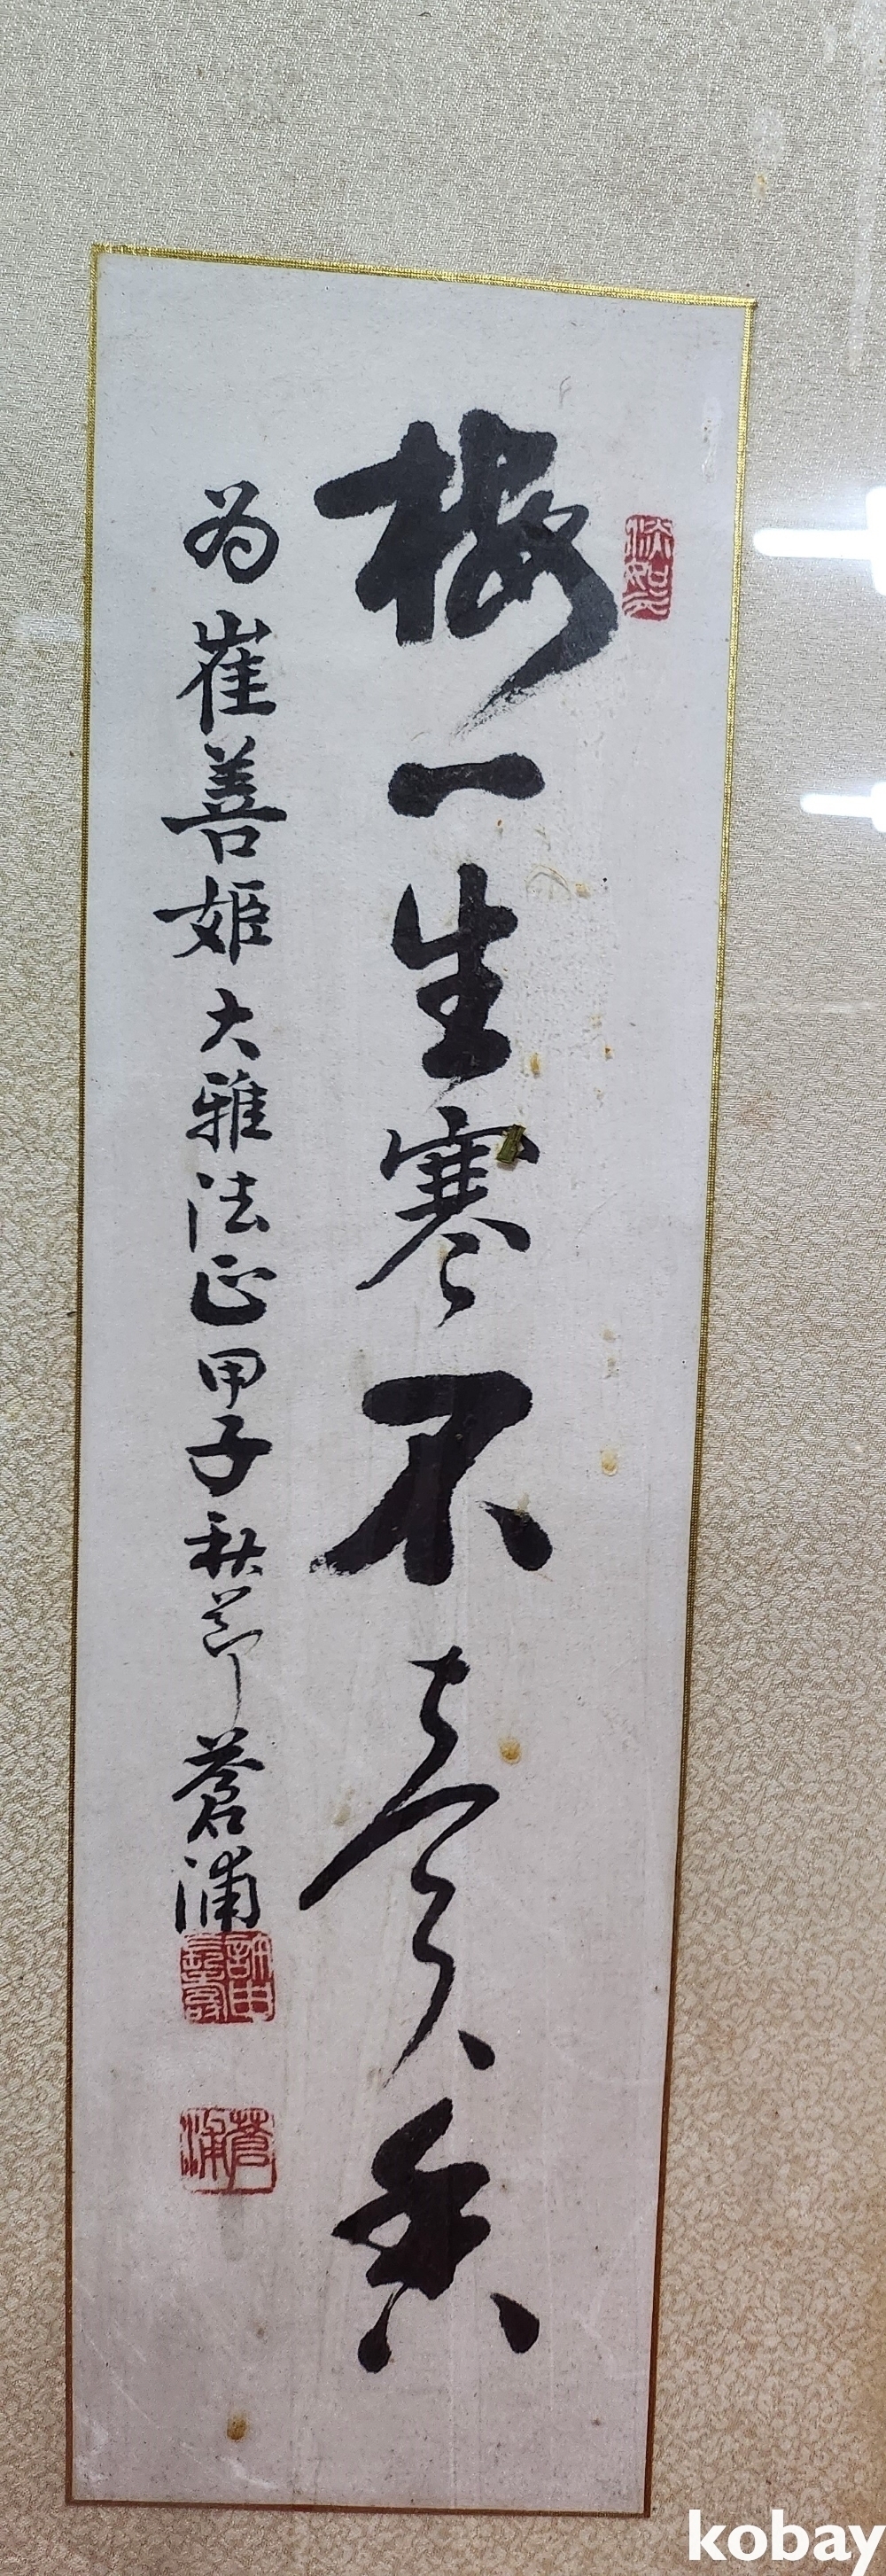 梅一生寒不賣香
為崔善姬大雅法正甲子秋節蒼浦
蒼浦
kobay